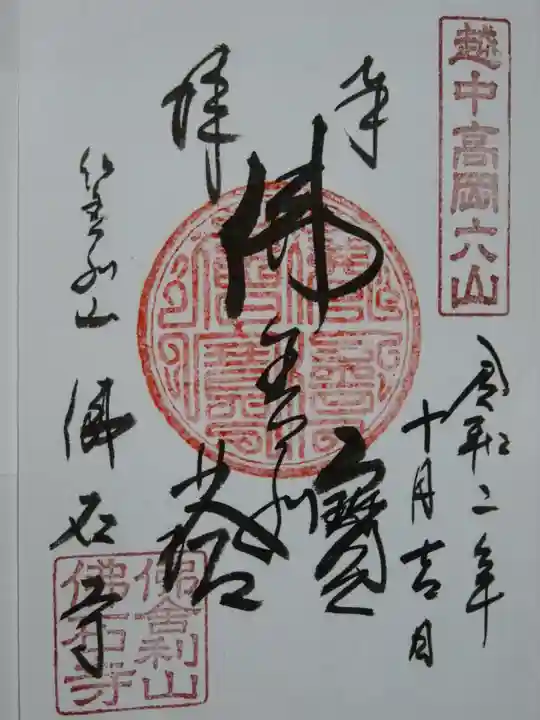 越中高岡六山
令和二年
十月吉日
奉
拝
佛舎利
寳塔
佛舎利山
佛石寺
佛舎利山
佛石寺